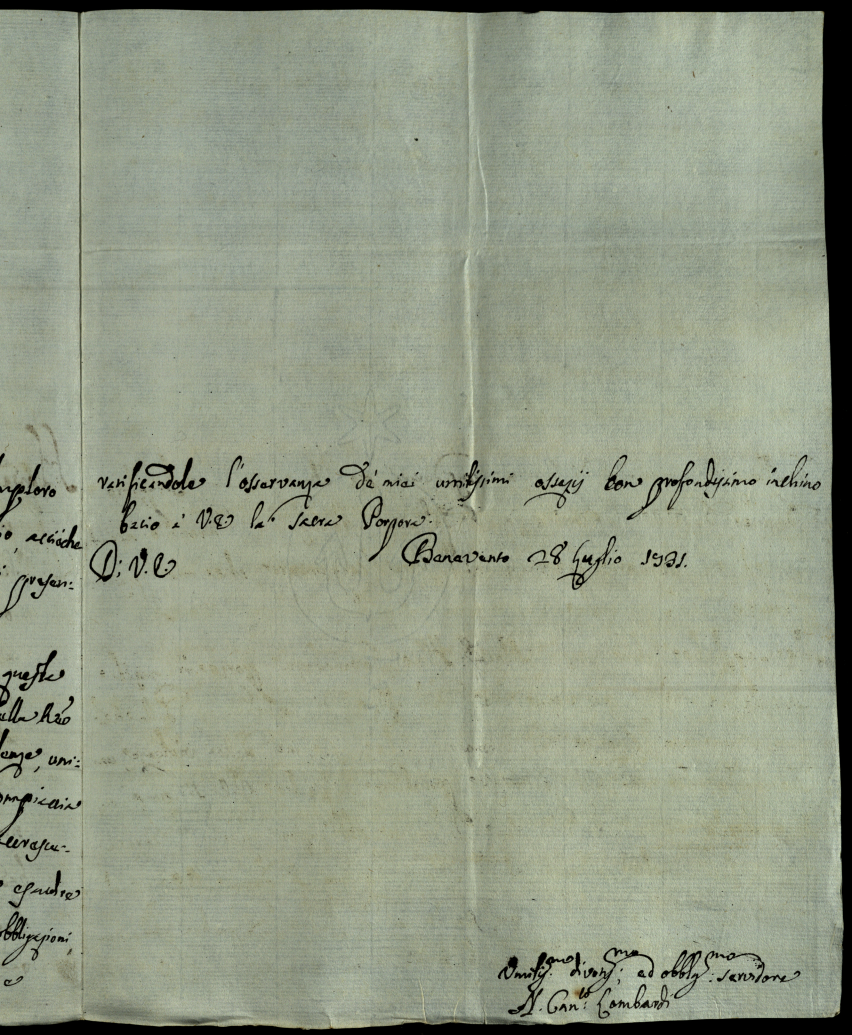 mploro
io, acciòche
presen:
questa
alla
lenza, umi:
esaudire
obbligazioni,
e
ratificandole l'osservanza de' miei umilissimi ossequij con profondissimo inchino
bacio à V.E. la Sacra Porpora.
Di V.E. Benevento 28 Luglio 1731.
Umiliss.mo divotiss.mo, ed obblig.mo servidore
N. Can.co Lombardi